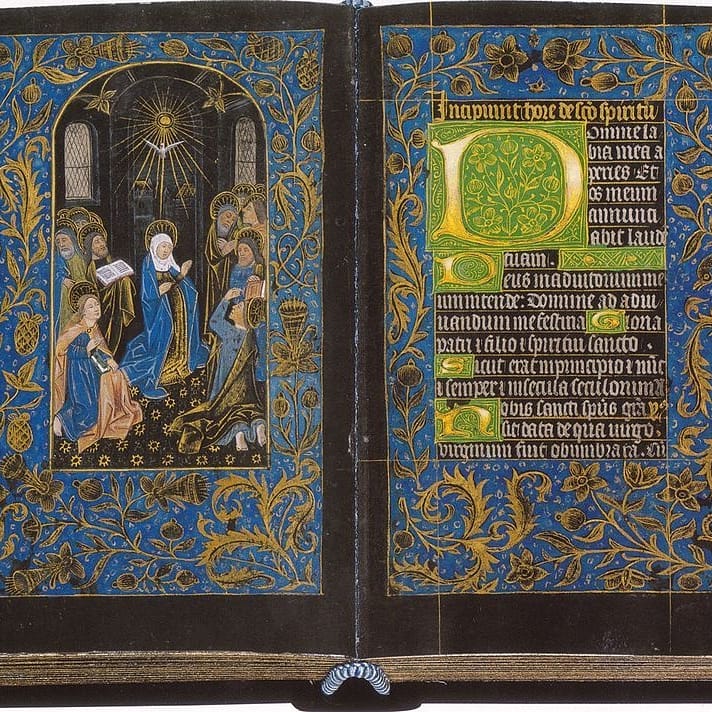 Incipiunt hore de sco spiritu
Domine la
bia mea a
peries Et
os meum
annunci
abit laude
tuam.
Deus in adiutorium me
um intende: Domine ad adiu
uandum me festina Gloria
patri ⁊ filio ⁊ spiritui sancto.
Sicut erat in principio ⁊ nūc
⁊ semper ⁊ in secula seculorum
Nobis sancti spūs grā
sit data de qua virgo
virginum fuit obumbrata.